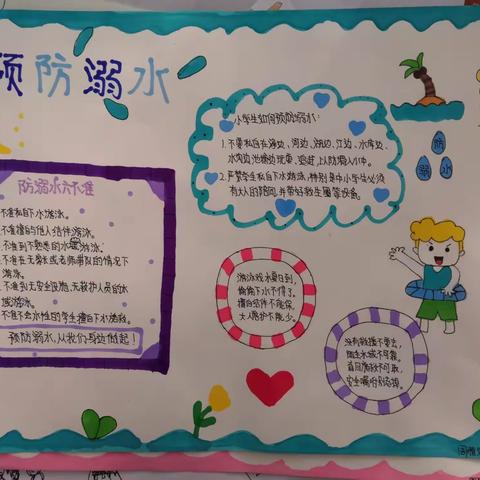 预防溺水
小学生如何预防溺水：
1.不要私自在海边、河边、湖边、江边、水库边、
水沟边、池塘边玩耍、追赶,以防滑入水中。
2.严禁私自下水游泳,特别是中小学生必须
有大人的陪同,并带好救生圈等设备。
防
溺
水
防溺水六不准
不准私自下水游泳。
不准擅自与他人结伴游泳。
不准到不熟悉的水域游泳。
不准在无家长或老师带队的情况下
游泳。
不准到无安全设施、无救护人员的水
域游泳。
不准不会水性的学生擅自下水施救。
预防溺水,从我们身边做起！
游泳戏水夏日到,
偷偷下水不得了。
擅自结伴不能保,
大人陪护不能少。
没有救援不要去,
陌生水域不可靠。
盲目施救不可取,